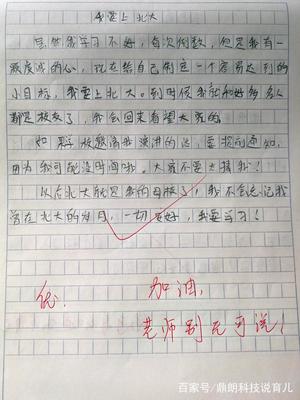 我要上北大
虽然我学习不好,每次倒数,但是我有一
颗真诚的心,现在给自己制定一个容易达到的
小目标,我要上北大。到时候我就和好多名人
都是校友了,我会回来看望大家的。
如果放假请我演讲的话,要提前通知,
因为我可能没时间哦。大家不要太羡我!
以后北大就是我的母校了,我不会忘记我
曾在北大的岁月,一切安好,我要学习!
优. 加油,
老师别无可说!
百家号/鼎朗科技说育儿